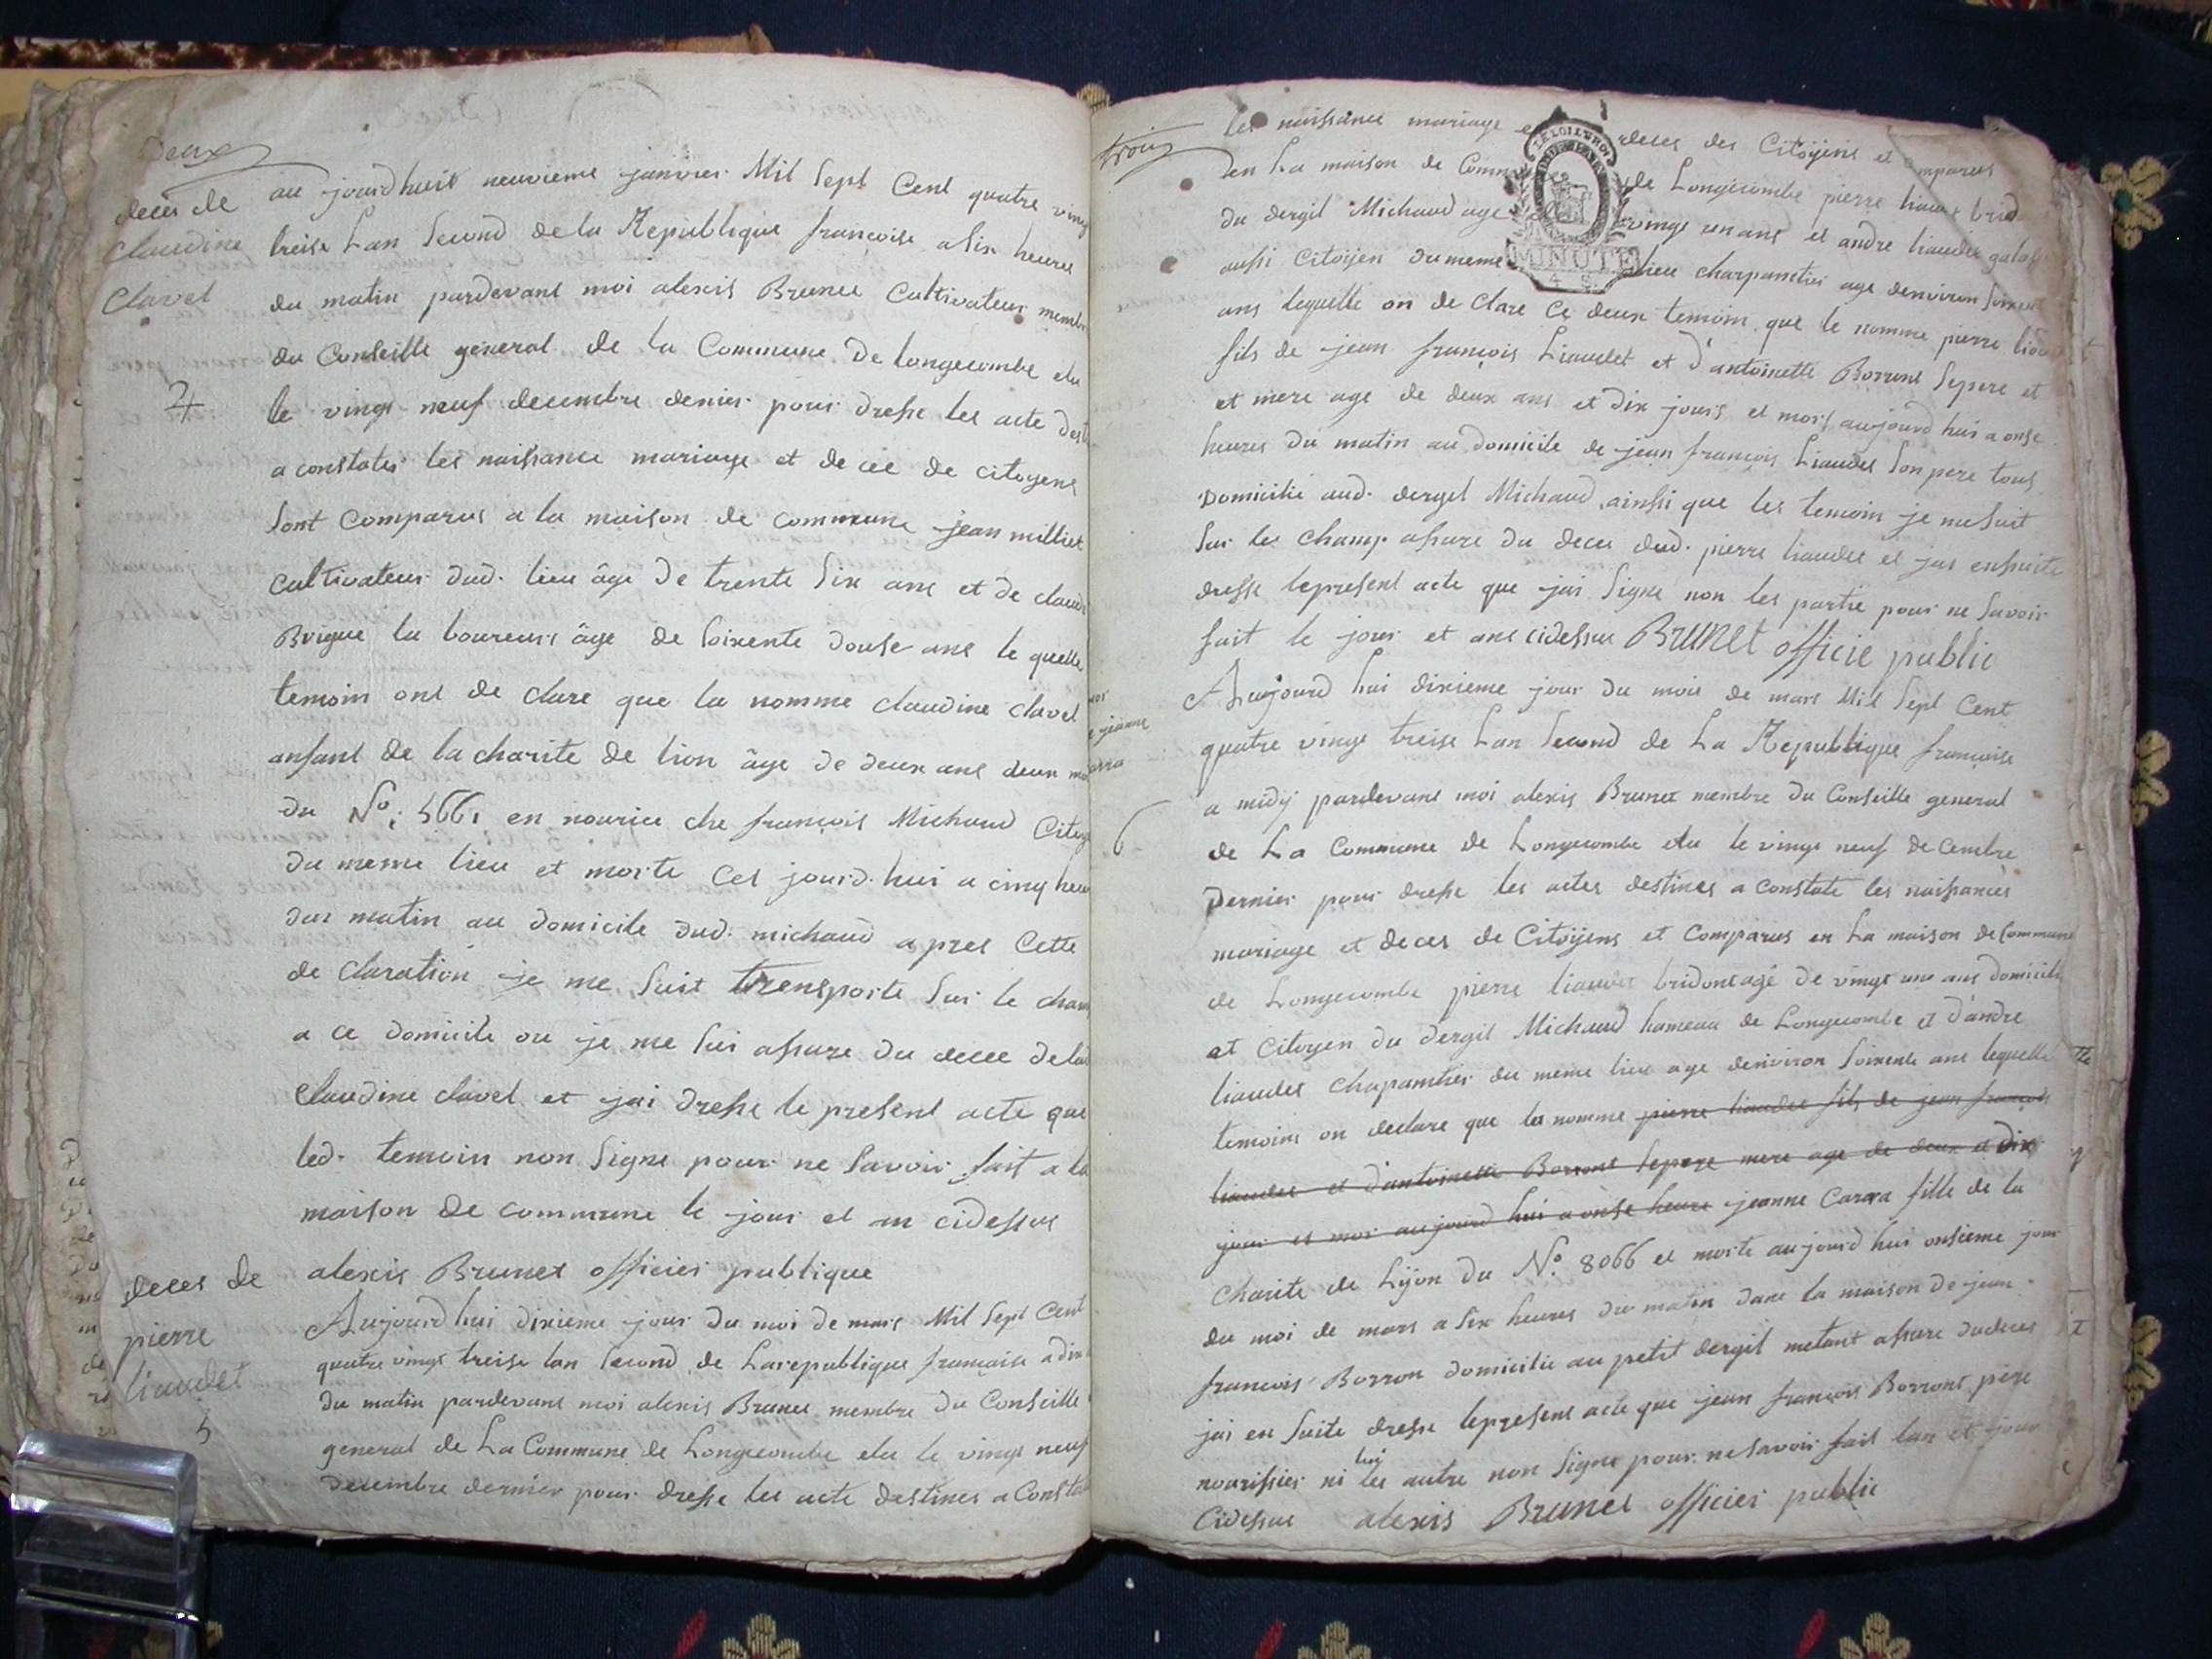 Deux
deces de
Claudine
Clavel
4
au jourdhuit neuvieme janvier Mil Sept Cent quatre vingt
treise Lan Second de la Republique françoise a Six heures
du matin pardevant moi alexis Brunet Cultivateur membre
du Conseille general de la Commune De longecombe elu
le vingt neuf decembre denier pour dresse les acte dest
a constater les naissance mariage et de cee de citoyens
Sont Comparus a la maison de commune jean milliet
Cultivateur dud. lieu âge de trente Six ans et de claude
Brigue la boureur âge de Soixente douse ans le quelle
temoin ont de clare que la nomme claudine clavel
anfant de la charite de lion âge de deux ans deux moi
du No: 5661 en nourice che françois Michaud Citoye
du meme lieu et morte Cet jourd. hui a cinq heure
du matin au domicile dud. michaud a pres Cette
de claration je me Suit transporte Sur le cham
a ce domicile ou je me Sui assure du decee de lad
Claudine clavel et jai dresse le present acte que
led. temoin non Signe pour ne Savoir fait a la
maison de commune le jour et an cidessus
alexis Brunet officier publique
deces de
pierre
liaudet
5
Aujourd hui dixieme jour du moi de mars Mil Sept Cent
quatre vingt treise lan Second de Larepublique françoise a dix
du matin pardevant moi alexis Brunet membre du Conseille
general de La Commune de Longecombe elu le vingt neuf
decembre dernier pour dresse les acte destines a Consta
trois
les naissance mariage et deces des Citoÿens et Comparus
den La maison de Comm de Longecombe pierre liaudet brid
du dergil Michaud age vingt un ans et andre liaudet galas
aussi Citoijen du meme lieu charpantier age denviron Soixent
ans lequelle on de clare Ce deux temoin que le nomme pierre liaudet
fils de jean françois Liaudet et d'antoinette Borront Sepere et
et mere age de deux ans et dix jours et mort aujourd hui a onse
heures du matin au domicile de jean françois Liaudet Son pere tous
Domicilie aud. dergil Michaud ainssi que les temoin je me Suit
Sur les champ assure du deces dud. pierre liaudet et jai enssuite
dresse lepresent acte que jai Signe non les partie pour ne Savoir
fait le jour et ans cidessus Brunet officie public
jeanne
arra
6
Aujourd hui dixieme jour du moie de mars Mil Sept Cent
quatre vingt treise Lan Second de La Republique françoise
a midÿ pardevant moi alexis Brunet membre du Conseille general
de La Commune de Longecombe elu le vingt neuf decembre
Dernier pour dresse les actes destines a Constate les naissances
mariage et deces de Citoÿens et Comparus en La maison de Commune
de Longecombe pierre liaudet bridont agé de vingt une ans domicile
et Citoyen du dergil Michaud hameau de Longecombe et d'andre
liaudet chapantier du meme lieu age denviron Soixente ans lequelle
temoins on declare que la nomme pierre liaudet fils de jean françois
liaudet et d'antoinette Borront Sepere mere age de deux et dix
jour et mor aujourd hui a onse heure jeanne Carra fille de la
Charite de Lÿon du No. 8066 et morte aujourd hui onsieme jour
du moi de mars a Six heures du matin dans la maison de jean
françois Borron domicilie au petit dergil metant assure dudeces
jai en Suite dresse lepresent acte que jean françois Borront pere
nourissier ni lui les autre non Signe pour ne Savoir fait lan et jour
Cidessus alexis Brunet officier public
MINUTE